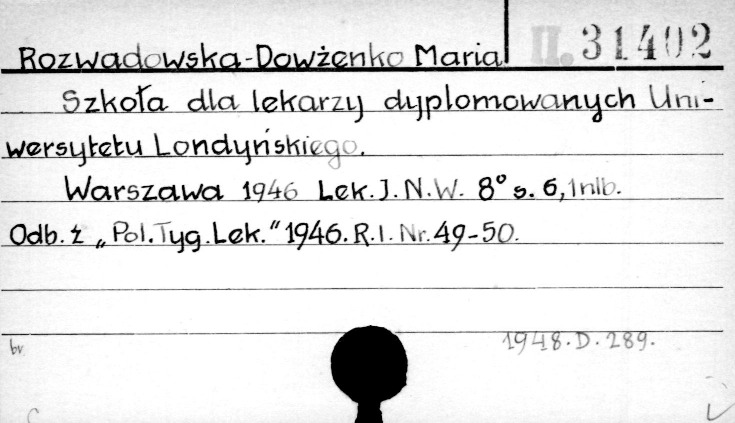 Rozwadowska-Dowżenko Maria II. 31402
Szkoła dla lekarzy dyplomowanych Uni-
wersytetu Londyńskiego.
Warszawa 1946 Lek. J. N. W. 8° s. 6, 1 nlb.
Odb. z „Pol. Tyg. Lek.“ 1946. R. I. Nr. 49-50.
1948. D. 289.
bv